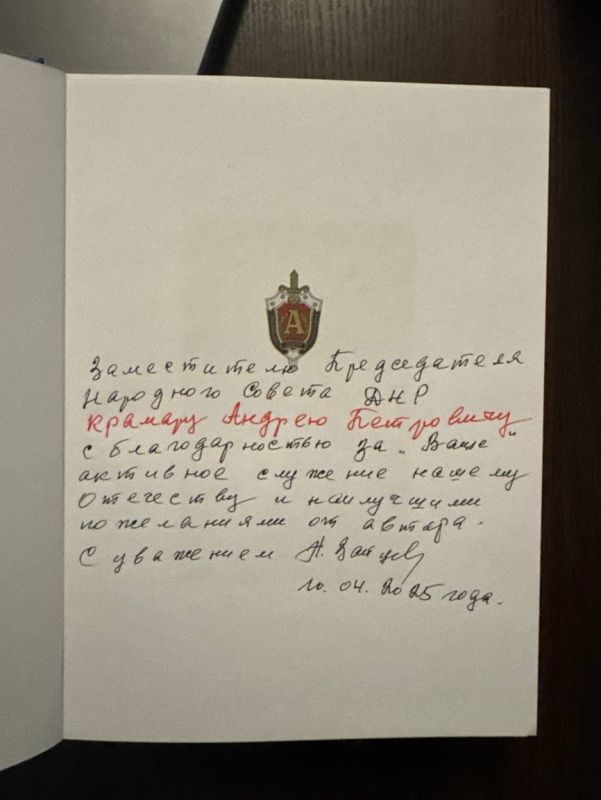 А
Заместителю Председателя
Народного Совета ДНР
Крамару Андрею Петровичу
с благодарностью за „Ваше"
активное служение нашему
Отечеству и наилучшими
пожеланиями от автора.
С уважением А. Зайцев
10.04.2025 года.